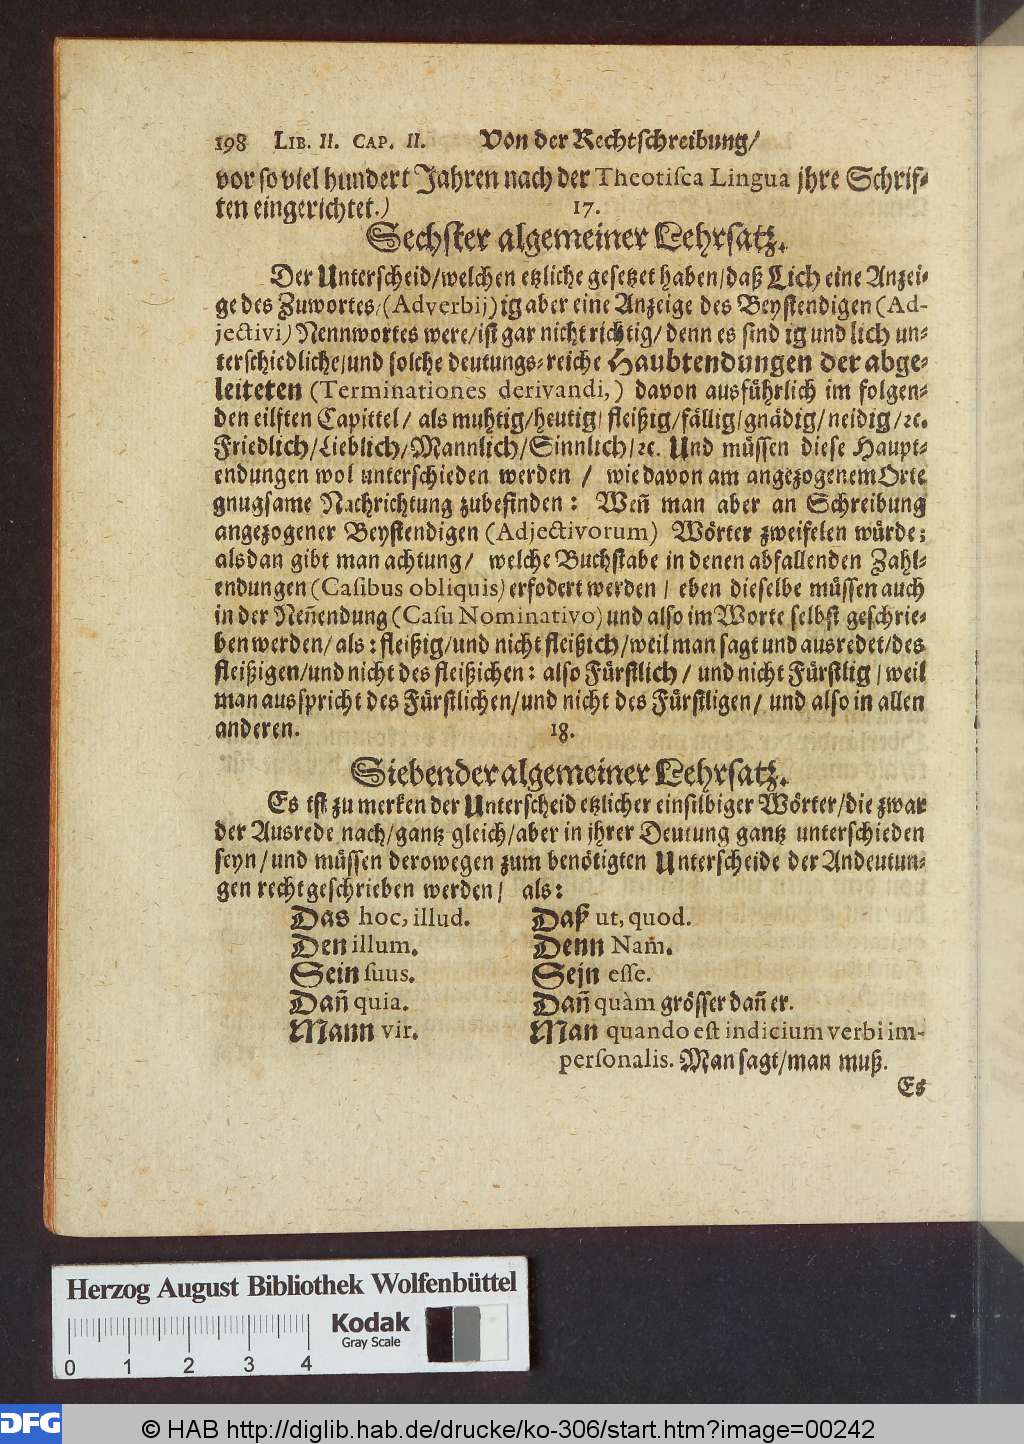 198 LIB. II. CAP. II. Von der Rechtschreibung/
vor so viel hundert Jahren nach der Theotisca Lingua jhre Schrif-
ten eingerichtet.) 17.
Sechster algemeiner Lehrsatz.
Der Unterscheid/welchen etzliche gesetzet haben/daß Lich eine Anzei-
ge des Zuwortes/(Adverbij) ig aber eine Anzeige des Beystendigen (Ad-
jectivi) Nennwortes were/ist gar nicht richtig/ denn es sind ig und lich un-
terschiedliche/und solche deutungs-reiche Haubtendungen der abge-
leiteten (Terminationes derivandi,) davon ausführlich im folgen-
den eilften Capittel/ als muhtig/heutig/ fleißig/fällig/gnädig/neidig/ ꝛc.
Friedlich/Lieblich/Mannlich/Sinnlich/ꝛc. Und müssen diese Haupt-
endungen wol unterschieden werden / wie davon am angezogenem Orte
gnugsame Nachrichtung zubefinden: Weñ man aber an Schreibung
angezogener Beystendigen (Adjectivorum) Wörter zweifelen würde;
alsdan gibt man achtung/ welche Buchstabe in denen abfallenden Zahl-
endungen (Casibus obliquis) erfodert werden / eben dieselbe müssen auch
in der Neñendung (Casu Nominativo) und also im Worte selbst geschrie-
ben werden/ als: fleißig/und nicht fleißich/weil man sagt und ausredet/des
fleißigen/und nicht des fleißichen: also Fürstlich/ und nicht Fürstlig/ weil
man ausspricht des Fürstlichen/und nicht des Fürstligen/ und also in allen
anderen. 18.
Siebender algemeiner Lehrsatz.
Es ist zu merken der Unterscheid etzlicher einsilbiger Wörter/die zwar
der Ausrede nach/gantz gleich/aber in jhrer Deutung gantz unterschieden
seyn/und müssen derowegen zum benötigten Unterscheide der Andeutun-
gen recht geschrieben werden/ als:
Das hoc, illud. Daß ut, quod.
Den illum. Denn Nam̃.
Sein suus. Sejn esse.
Dañ quia. Dañ quàm grösser dañ er.
Mann vir. Man quando est indicium verbi im-
personalis. Man sagt/man muß.
Es
Herzog August Bibliothek Wolfenbüttel
Kodak
Gray Scale
0 1 2 3 4
DFG © HAB http://diglib.hab.de/drucke/ko-306/start.htm?image=00242